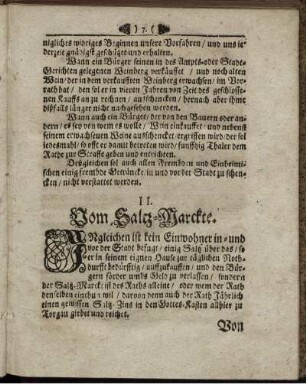 ( 7. )
nigliches widriges Beginnen unsere Vorfahren / und uns ie-
derzeit gnädigst geschützt und erhalten.
Wann ein Bürger seinen in des Ampts- oder Stadt-
Gerichten gelegenen Weinberg verkauffet / und noch alten
Wein / der in dem verkaufften Weinberg erwachsen / im Vor-
rath hat / den sol er in vierer Jahren von Zeit des geschlosse-
nen Kauffs an zu rechnen / ausschencken / hernach aber ihme
dißfalls länger nicht nachgesehen werden.
Wann auch ein Bürger / der von den Bauern oder an-
dern / es sey von wem es wolle / Wein einkauffet / und nebenst
seinem erwachsenen Weine ausschencket / ergriffen wird der sol
iedesmahl / so offt er damit betreten wird / funffzig Thaler dem
Rathe zur Straffe geben und entrichten.
Desgleichen sol auch allen Frembden und Einheimi-
schen einig frembde Geträncke / in und vor der Stadt zu schen-
cken / nicht verstattet werden.
II.
Vom Saltz-Marckte.
Ingleichen ist kein Einwohner in- und
vor der Stadt befugt / einig Saltz über das / so
er in seinem eignen Hause zur täglichen Noth-
durfft bedürfftig / auffzukauffen / und den Bür-
gern förder umbs Geld zu verlassen / sondern
der Saltz-Marckt ist des Raths alleine / oder wem der Rath
denselben einthun wil / davon denn auch der Rath Jährlich
einen gewissen Saltz-Zins in den Gottes-Kasten allhier zu
Torgau giebet und reichet.
Von